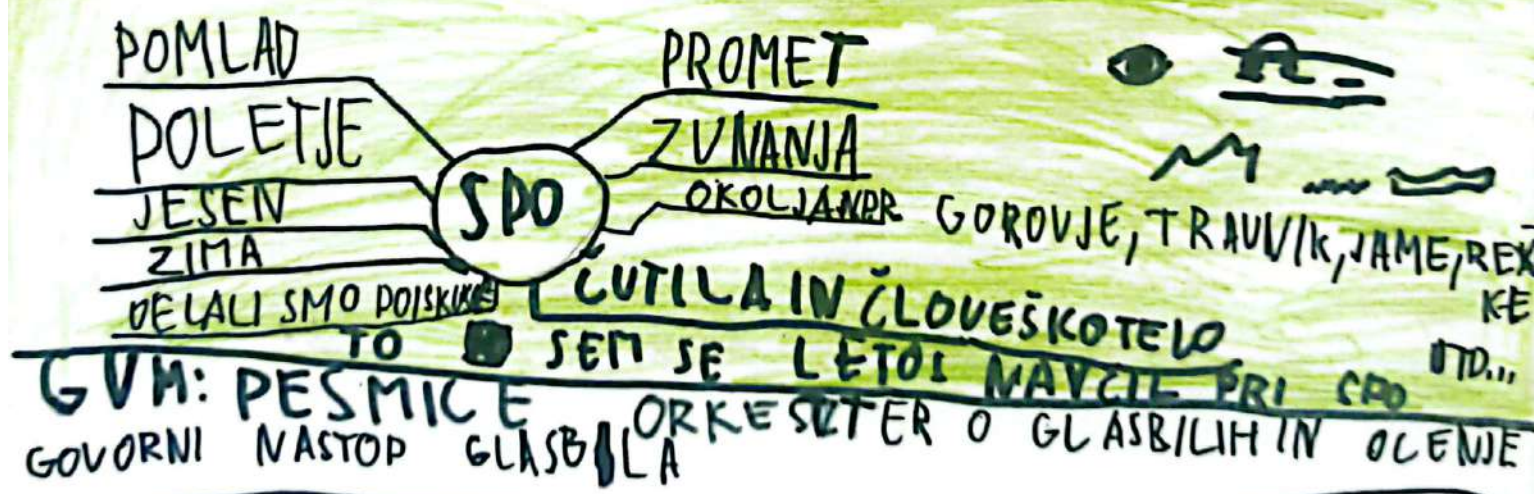 POMLAD
POLETJE
JESEN
ZIMA
DELALI SMO POISKUSE
SPO
PROMET
ZUNANJA
OKOLJA NPR. GOROVJE, TRAVVIK, JAME, REK
KE
ITD...
ČUTILA IN ČLOVEŠKO TELO
TO SEM SE LETOS NAVČIL PRI SPO
GVM: PESMICE ORKESTER O GLASBILIH IN OCENJE
GOVORNI NASTOP GLASBILA